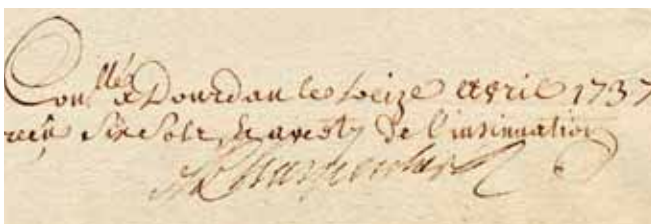 Con.llé a Dourdan le seize avril 1737
reçu six sols de l'insinuation